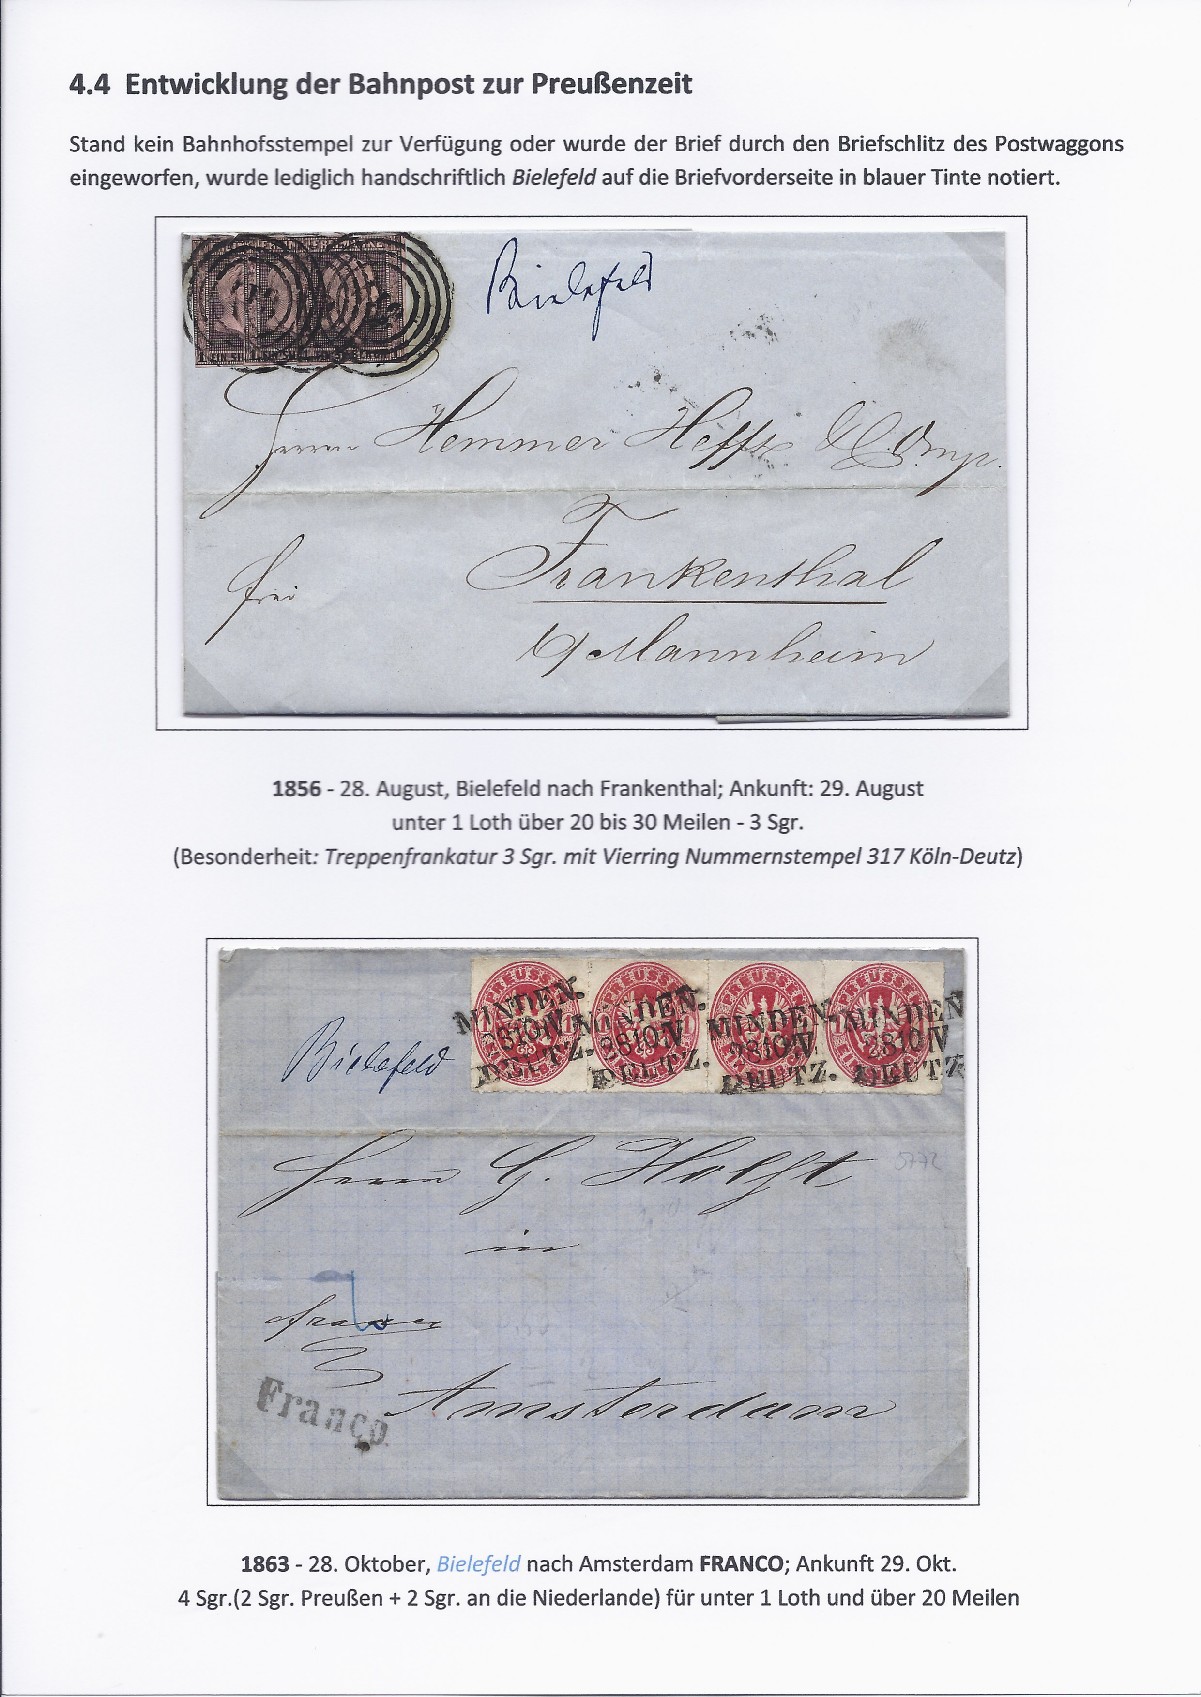 4.4 Entwicklung der Bahnpost zur Preußenzeit
Stand kein Bahnhofsstempel zur Verfügung oder wurde der Brief durch den Briefschlitz des Postwaggons
eingeworfen, wurde lediglich handschriftlich Bielefeld auf die Briefvorderseite in blauer Tinte notiert.
Bielefeld
Herrn Hemmer Hefft & Comp.
frei
Frankenthal
b/Mannheim
1856 - 28. August, Bielefeld nach Frankenthal; Ankunft: 29. August
unter 1 Loth über 20 bis 30 Meilen - 3 Sgr.
(Besonderheit: Treppenfrankatur 3 Sgr. mit Vierring Nummernstempel 317 Köln-Deutz)
PREUSSEN PREUSSEN PREUSSEN PREUSSEN
MINDEN. MINDEN. MINDEN. MINDEN
28 10 IV 28 10 IV 28 10 IV 28 10 IV
DEUTZ. DEUTZ. DEUTZ. DEUTZ
Bielefeld
Herrn G. Holst
5772
in
franco
Franco.
Amsterdam
1863 - 28. Oktober, Bielefeld nach Amsterdam FRANCO; Ankunft 29. Okt.
4 Sgr.(2 Sgr. Preußen + 2 Sgr. an die Niederlande) für unter 1 Loth und über 20 Meilen